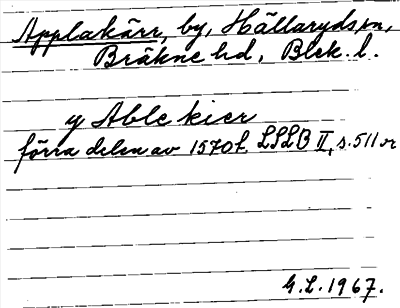 Applakärr, by, Hällaryds sn,
Bräkne hd, Blek. l.
y Able kier
förra delen av 1570t. LSLB II, s. 511 or
G.L. 1967.